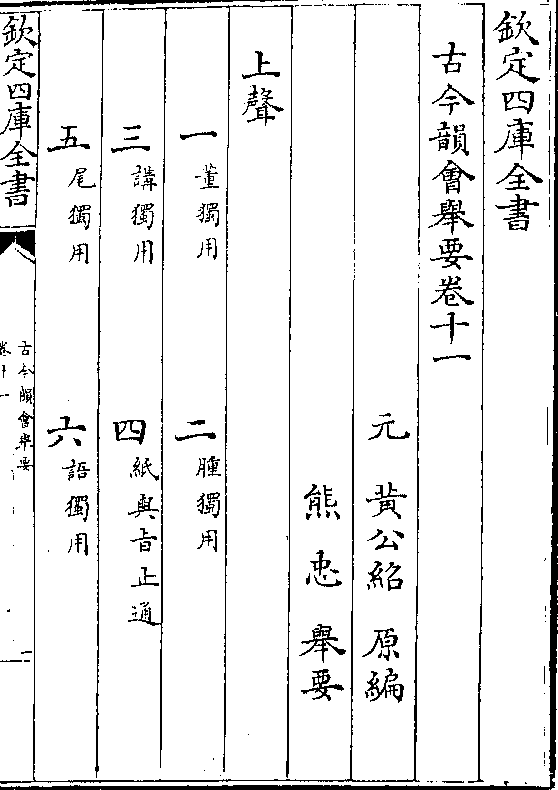 欽定四庫全書
古今韻會舉要卷十一
元 黄公紹 原編
熊忠 舉要
上聲
一 董獨用 二 腫獨用
三 講獨用 四 紙與旨止通
五 尾獨用 六 語獨用
欽定四庫全書
古今韻會舉要
卷十一